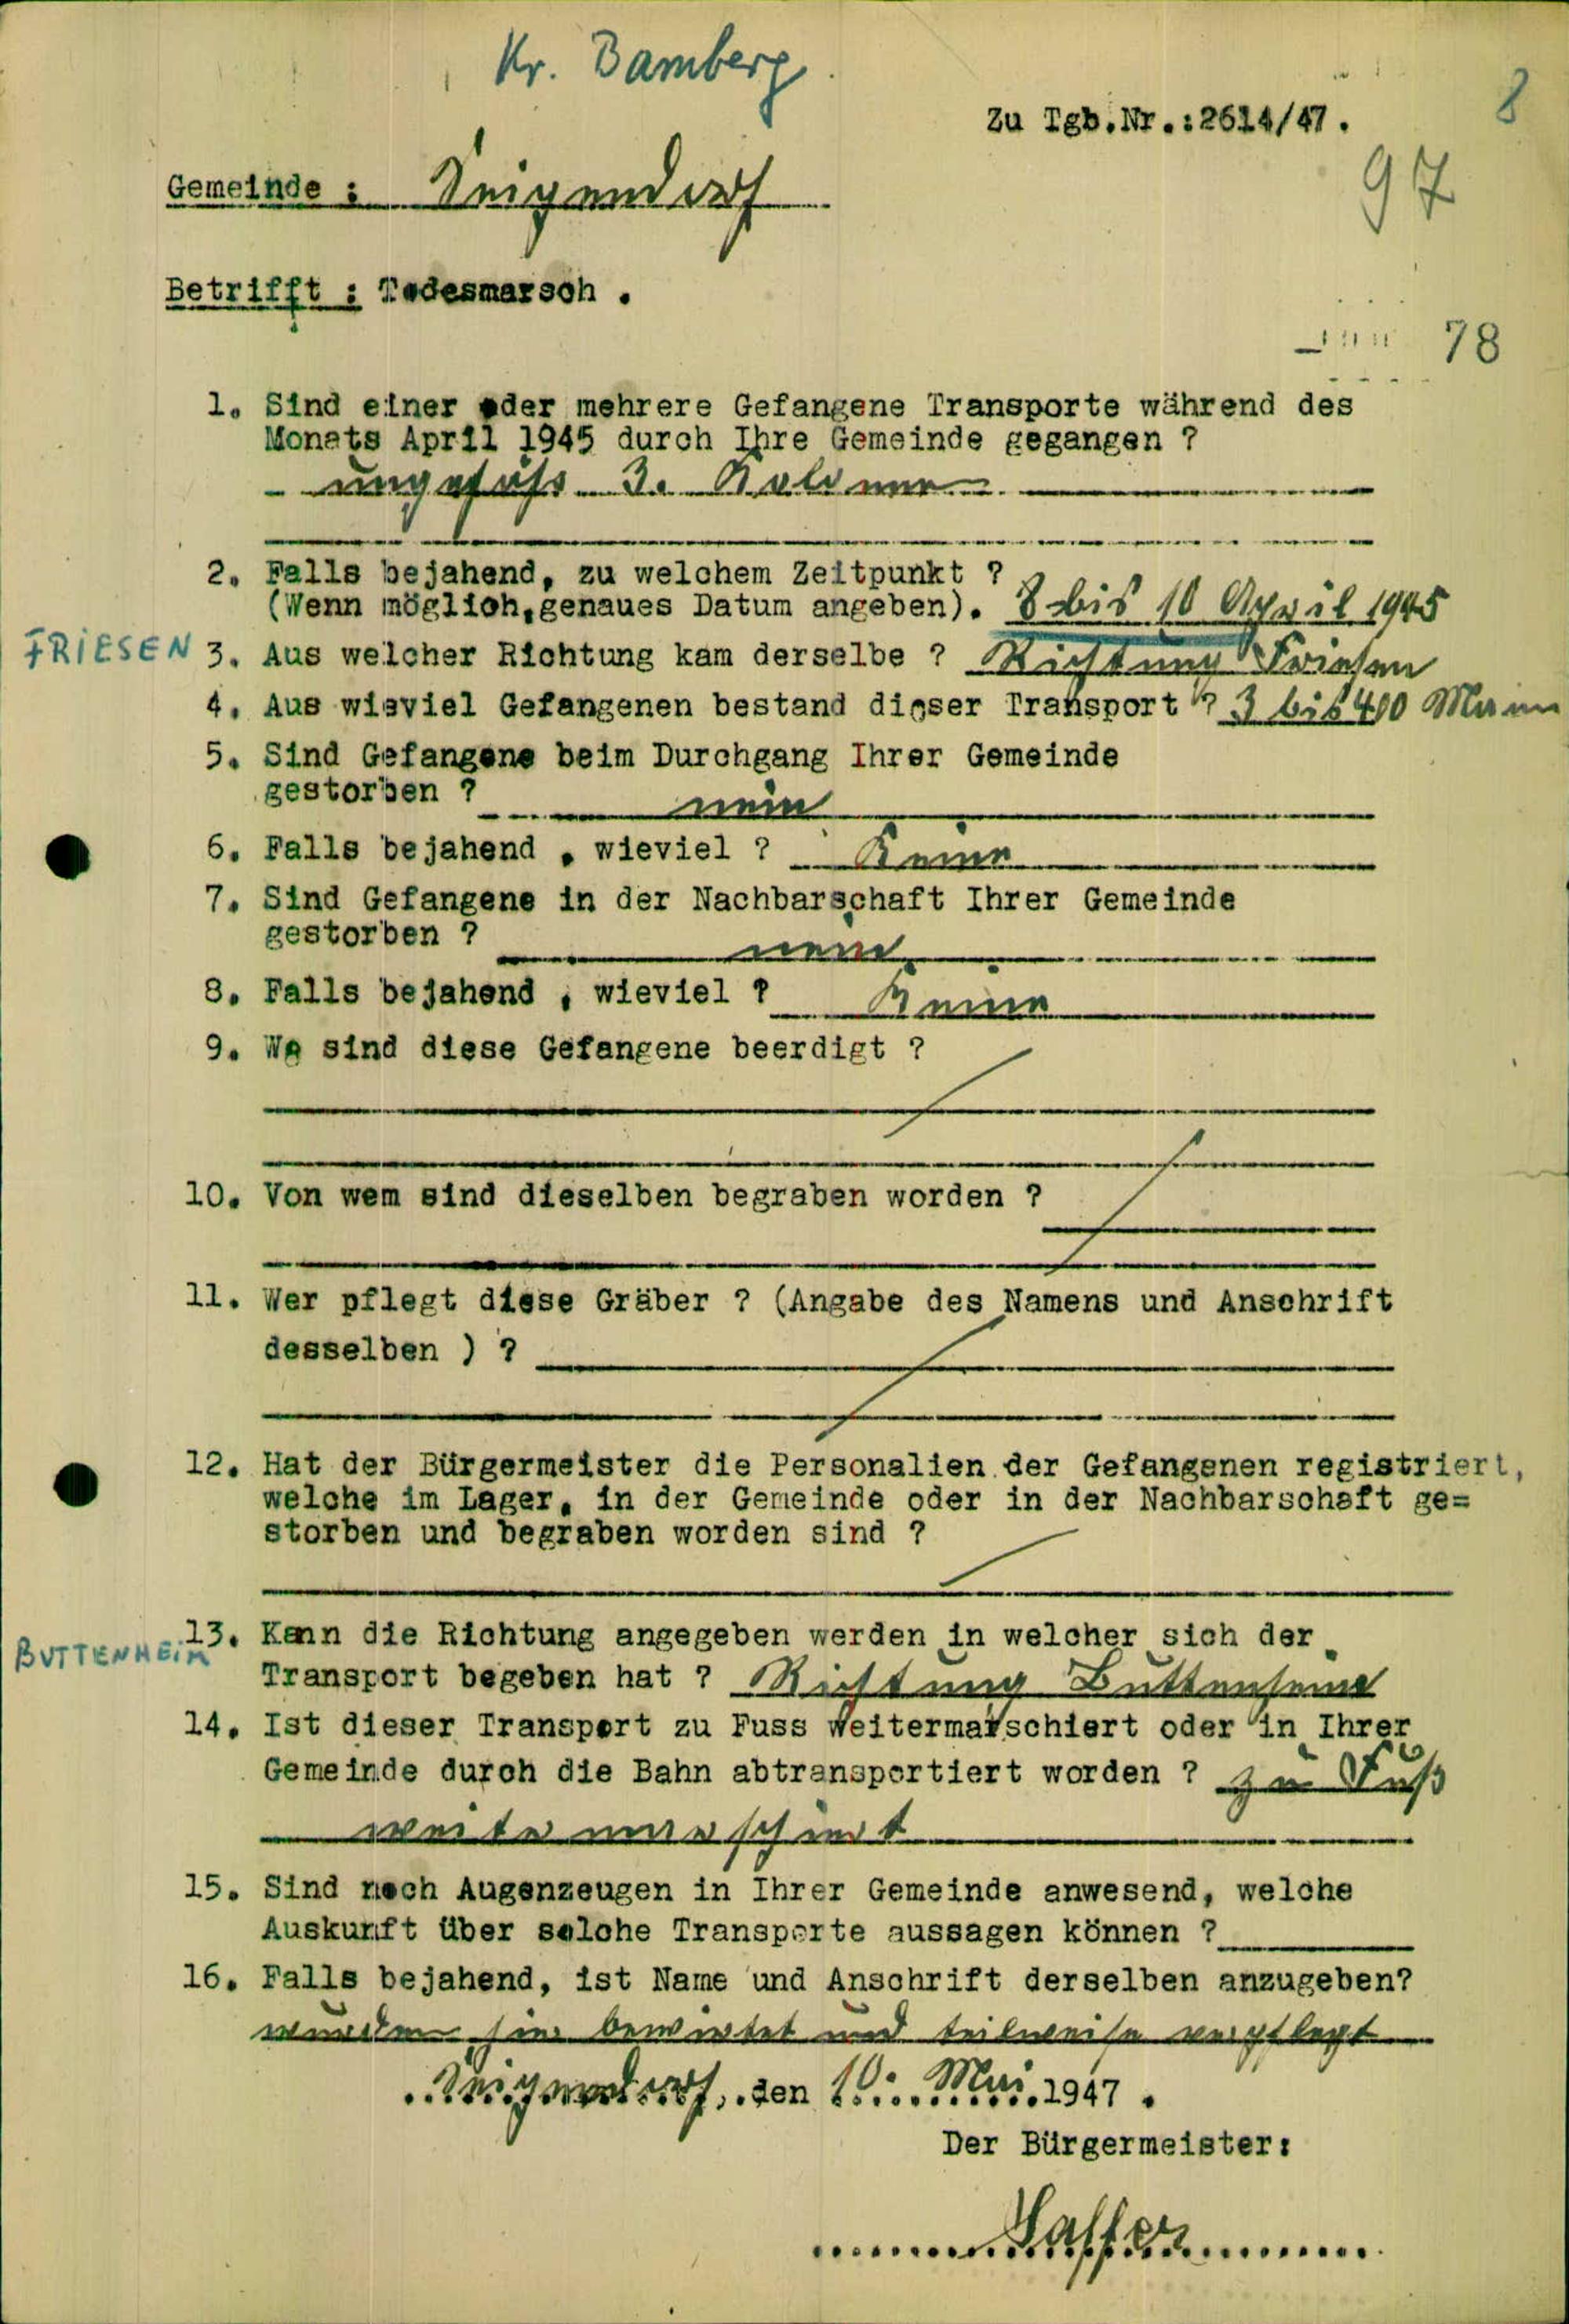 Kr. Bamberg
8
Zu Tgb.Nr.:2614/47.
97
Gemeinde : Seigendorf
Betrifft : Todesmarsch .
78
1. Sind einer oder mehrere Gefangene Transporte während des
Monats April 1945 durch Ihre Gemeinde gegangen ?
ungefähr 3. Kolonnen
2. Falls bejahend, zu welchem Zeitpunkt ?
(Wenn möglich,genaues Datum angeben). 8 bis 10 April 1945
FRIESEN 3. Aus welcher Richtung kam derselbe ? Richtung Friesen
4. Aus wieviel Gefangenen bestand dieser Transport ? 3 bis 400 Mann
5. Sind Gefangene beim Durchgang Ihrer Gemeinde
gestorben ? nein
6. Falls bejahend , wieviel ? Keine
7. Sind Gefangene in der Nachbarschaft Ihrer Gemeinde
gestorben ? nein
8. Falls bejahend , wieviel ? Keine
9. Wo sind diese Gefangene beerdigt ?
10. Von wem sind dieselben begraben worden ?
11. Wer pflegt diese Gräber ? (Angabe des Namens und Anschrift
desselben ) ?
12. Hat der Bürgermeister die Personalien der Gefangenen registriert,
welche im Lager, in der Gemeinde oder in der Nachbarschaft ge=
storben und begraben worden sind ?
BUTTENHEIM 13. Kann die Richtung angegeben werden in welcher sich der
Transport begeben hat ? Richtung Buttenheim
14. Ist dieser Transport zu Fuss weitermarschiert oder in Ihrer
Gemeinde durch die Bahn abtransportiert worden ? zu Fuß
weitermarschiert
15. Sind noch Augenzeugen in Ihrer Gemeinde anwesend, welche
Auskunft über solche Transporte aussagen können ?
16. Falls bejahend, ist Name und Anschrift derselben anzugeben?
wurden hier bewirtet und teilweise verpflegt
Seigendorf, den 10. Mai 1947 .
Der Bürgermeister: